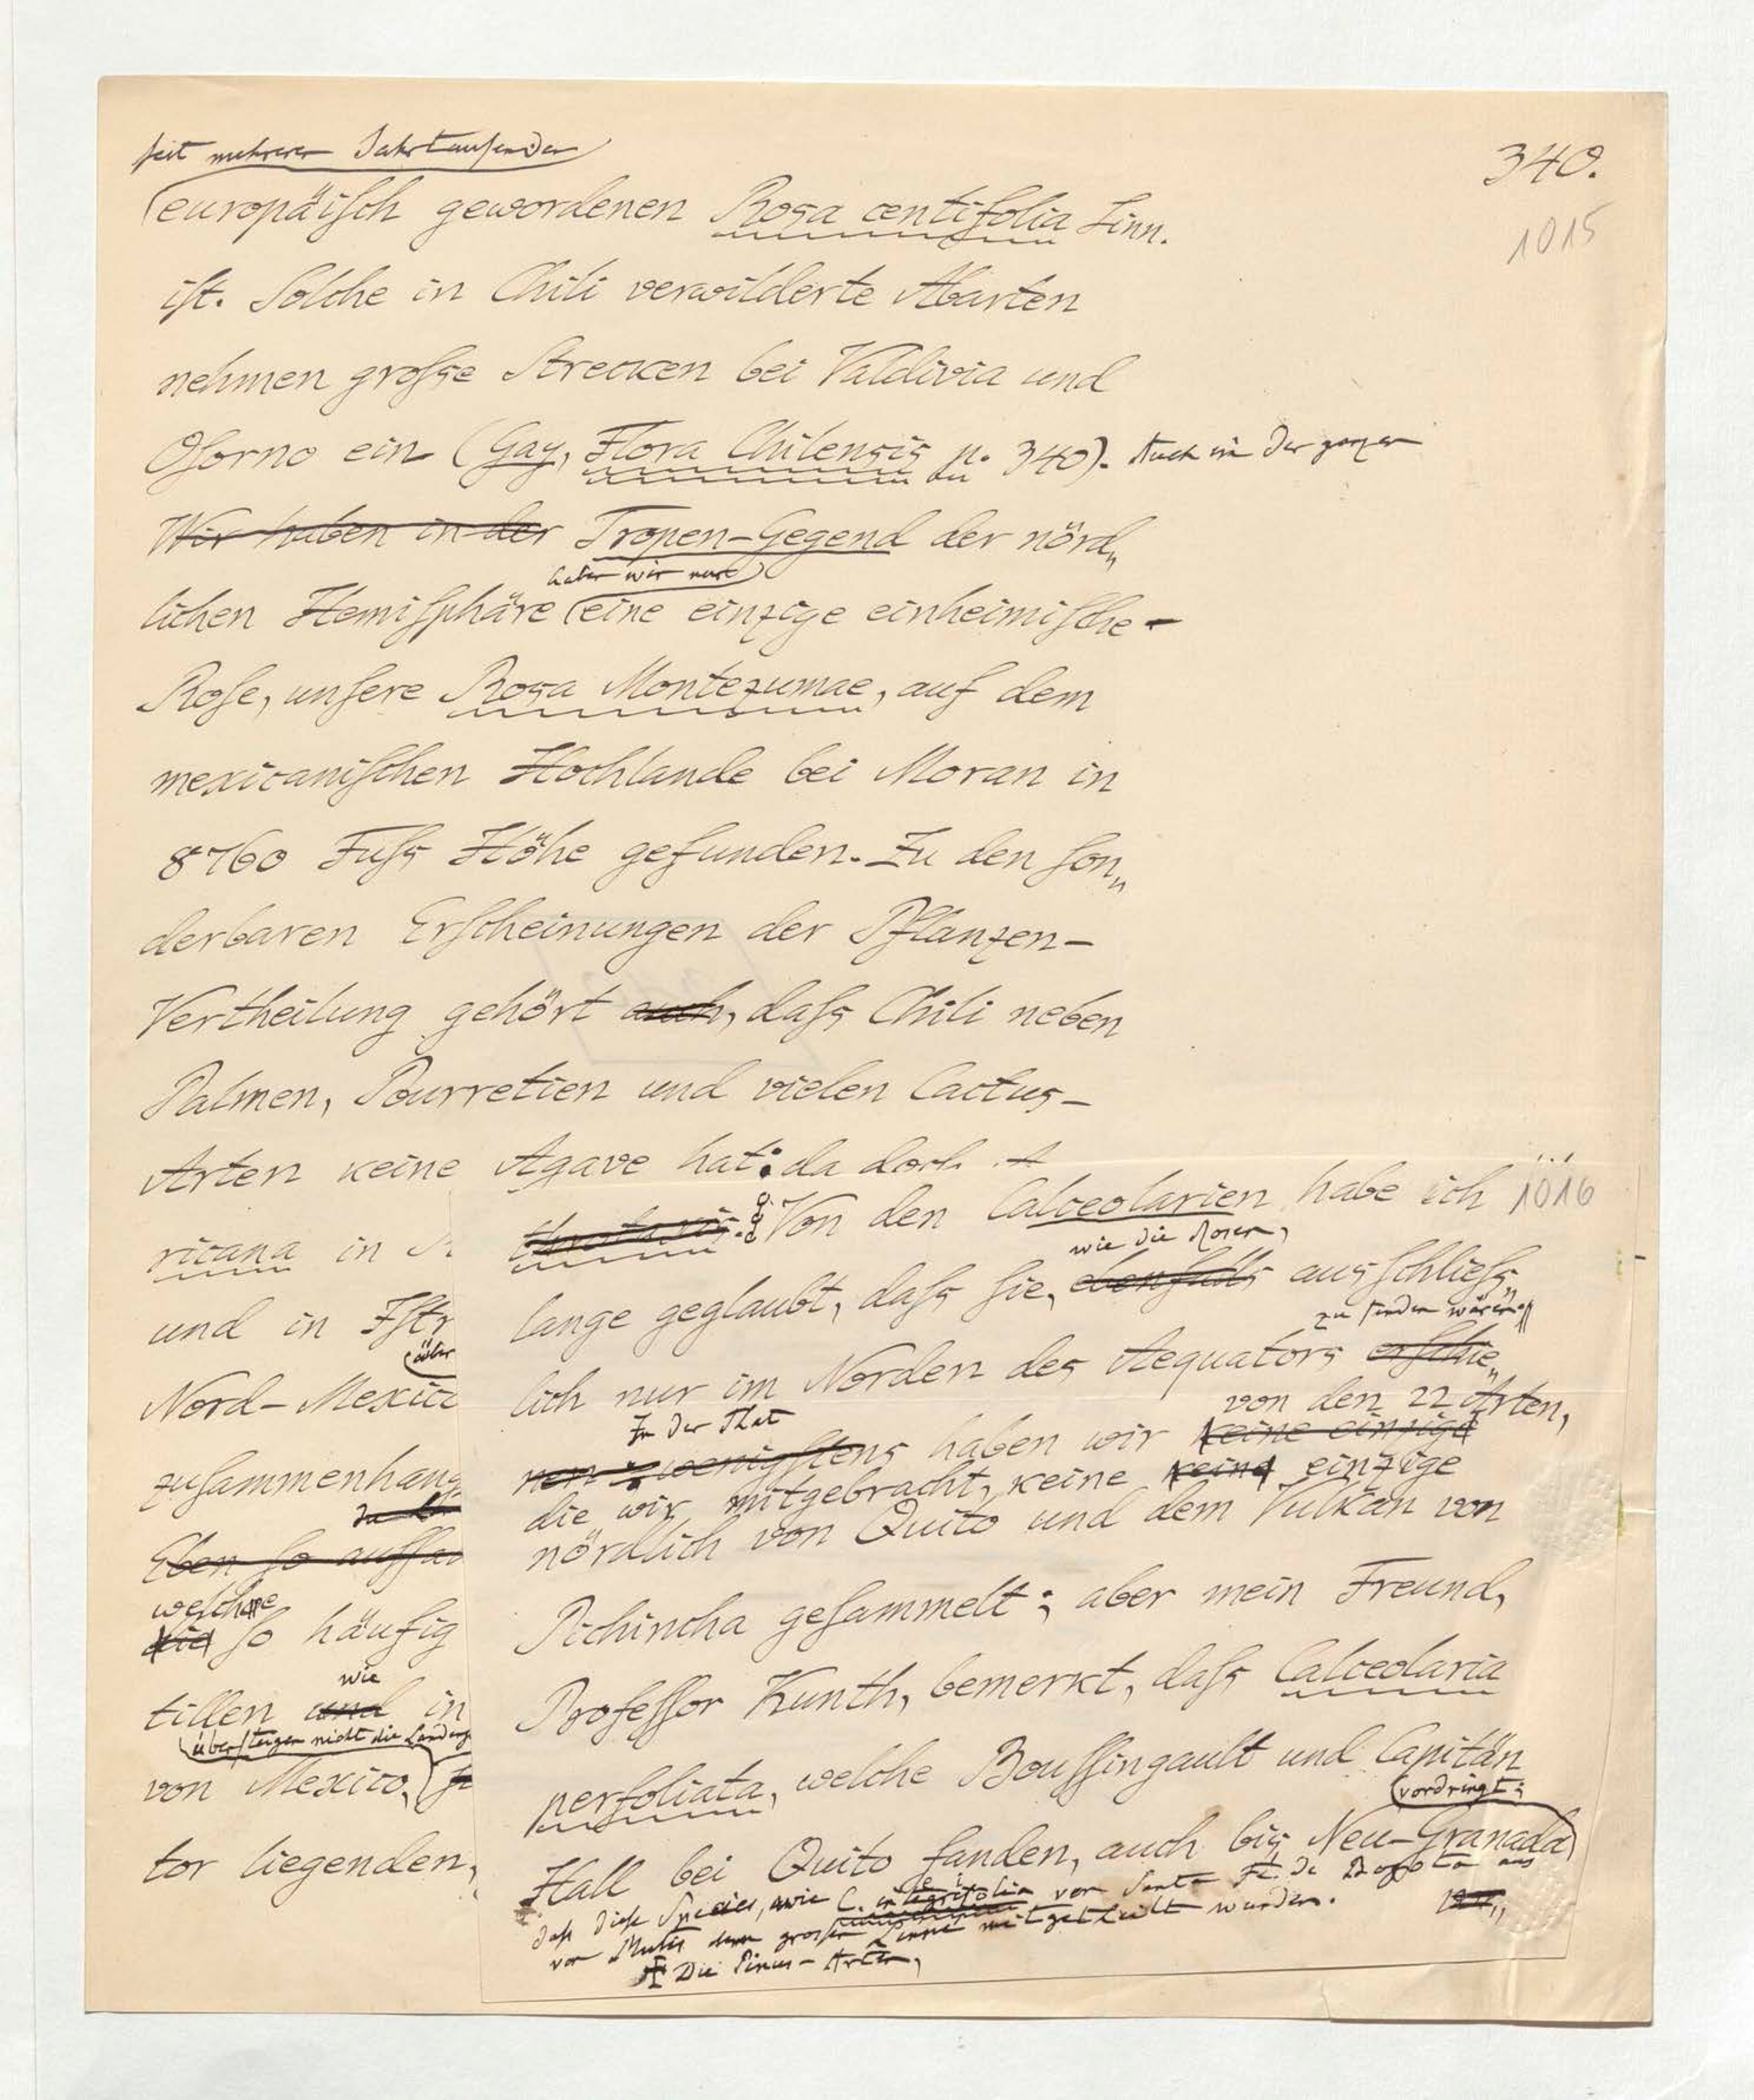 340.
1015
seit mehreren Jahrtausenden
europäisch gewordenen Rosa centifolia Linn.
ist. Solche in Chili verwilderte Abarten
nehmen grosse Strecken bei Valdivia und
Osorno ein (Gay, Flora Chilensis p. 340). Auch in der ganzen
Wir haben in der Tropen-Gegend der nörd„
haben wir nur
lichen Hemisphäre eine einzige einheimische
Rose, unsere Rosa Montezumae, auf dem
mexicanischen Hochlande bei Moran in
8760 Fuss Höhe gefunden. Zu den son„
derbaren Erscheinungen der Pflanzen-
Vertheilung gehört auch, dass Chili neben
Palmen, Pourretien und vielen Cactus-
Arten keine Agave hat: da doch A
ricana in
und in Istr
über
Nord-Mexic
zusammenhang
Eben so auffa
welche
die so häufig
wie
tillen und in
übersteigen nicht die Landenge
von Mexico,
tor liegenden,
1016
Von den Calceolarien habe ich
wie die Rosen,
lange geglaubt, dass sie, ebenfalls ausschliess„
zu finden wären
lich nur im Norden des Aequators erschie„
von den 22 Arten,
In der That
nen: wenigstens haben wir keine einzige
die wir mitgebracht, keine keine einzige
nördlich von Quito und dem Vulkan von
Pichincha gesammelt; aber mein Freund,
Professor Kunth, bemerkt, dass Calceolaria
perfoliata, welche Boussingault und Capitän
vordringt;
Hall bei Quito fanden, auch bis Neu-Granada
dass diese Species, wie C. integrifolia von Santa Fé de Bogota aus
von Mutis dem grossen Linné mitgetheilt wurden.
Die Pinus-Arten,